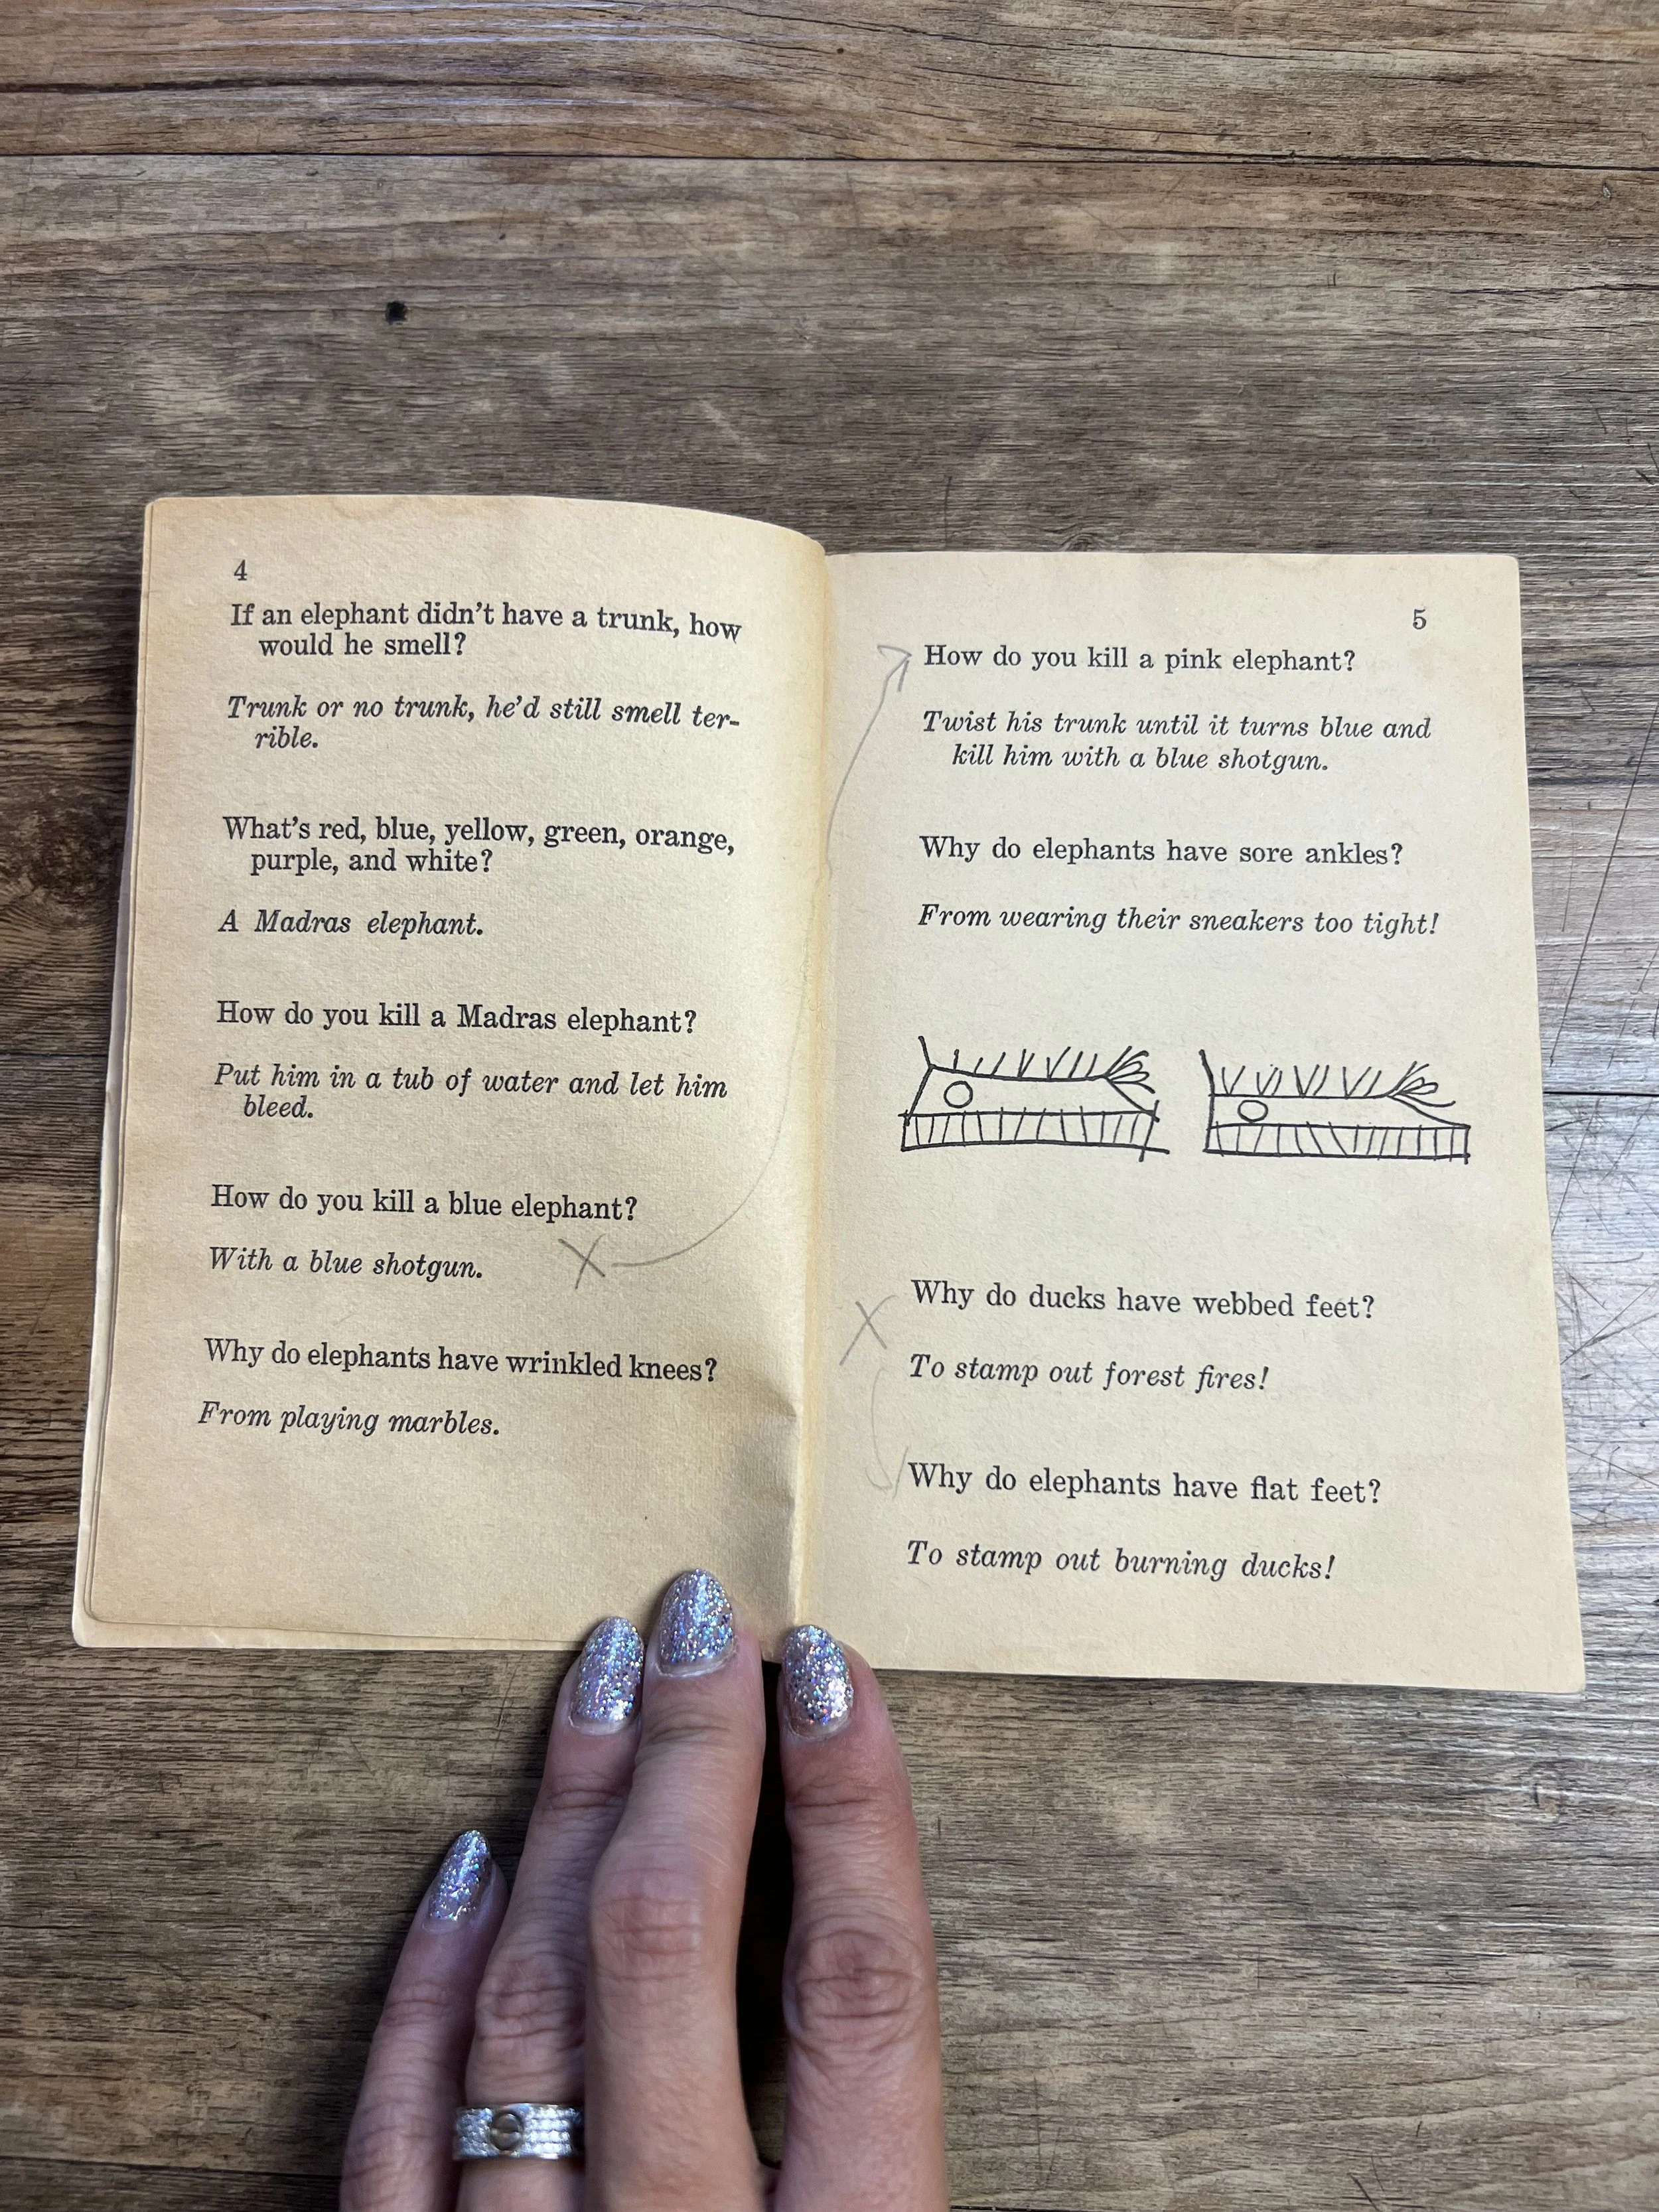 4
If an elephant didn't have a trunk, how
would he smell?
Trunk or no trunk, he'd still smell ter-
rible.
What's red, blue, yellow, green, orange,
purple, and white?
A Madras elephant.
How do you kill a Madras elephant?
Put him in a tub of water and let him
bleed.
How do you kill a blue elephant?
With a blue shotgun.
X
Why do elephants have wrinkled knees?
From playing marbles.
5
How do you kill a pink elephant?
Twist his trunk until it turns blue and
kill him with a blue shotgun.
Why do elephants have sore ankles?
From wearing their sneakers too tight!
Why do ducks have webbed feet?
X
To stamp out forest fires!
Why do elephants have flat feet?
To stamp out burning ducks!